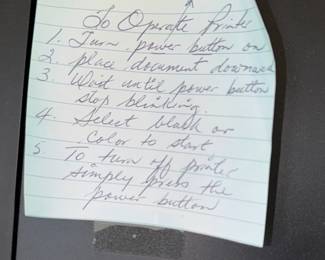 To Operate Printer
1. Turn power button on
2. place document downward
3. Wait until power button
stop blinking.
4. Select black or
color to start
5. To turn off printer
simply press the
power button